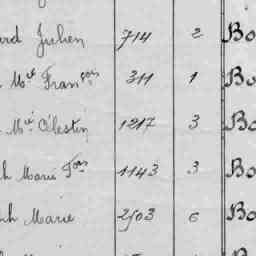 Julien 714 2 Bo
Mie François 311 1 Bo
Mie Célestin 1217 3 Bo
h Marie Fois 1143 3 Bo
ph Marie 2703 6 Bo